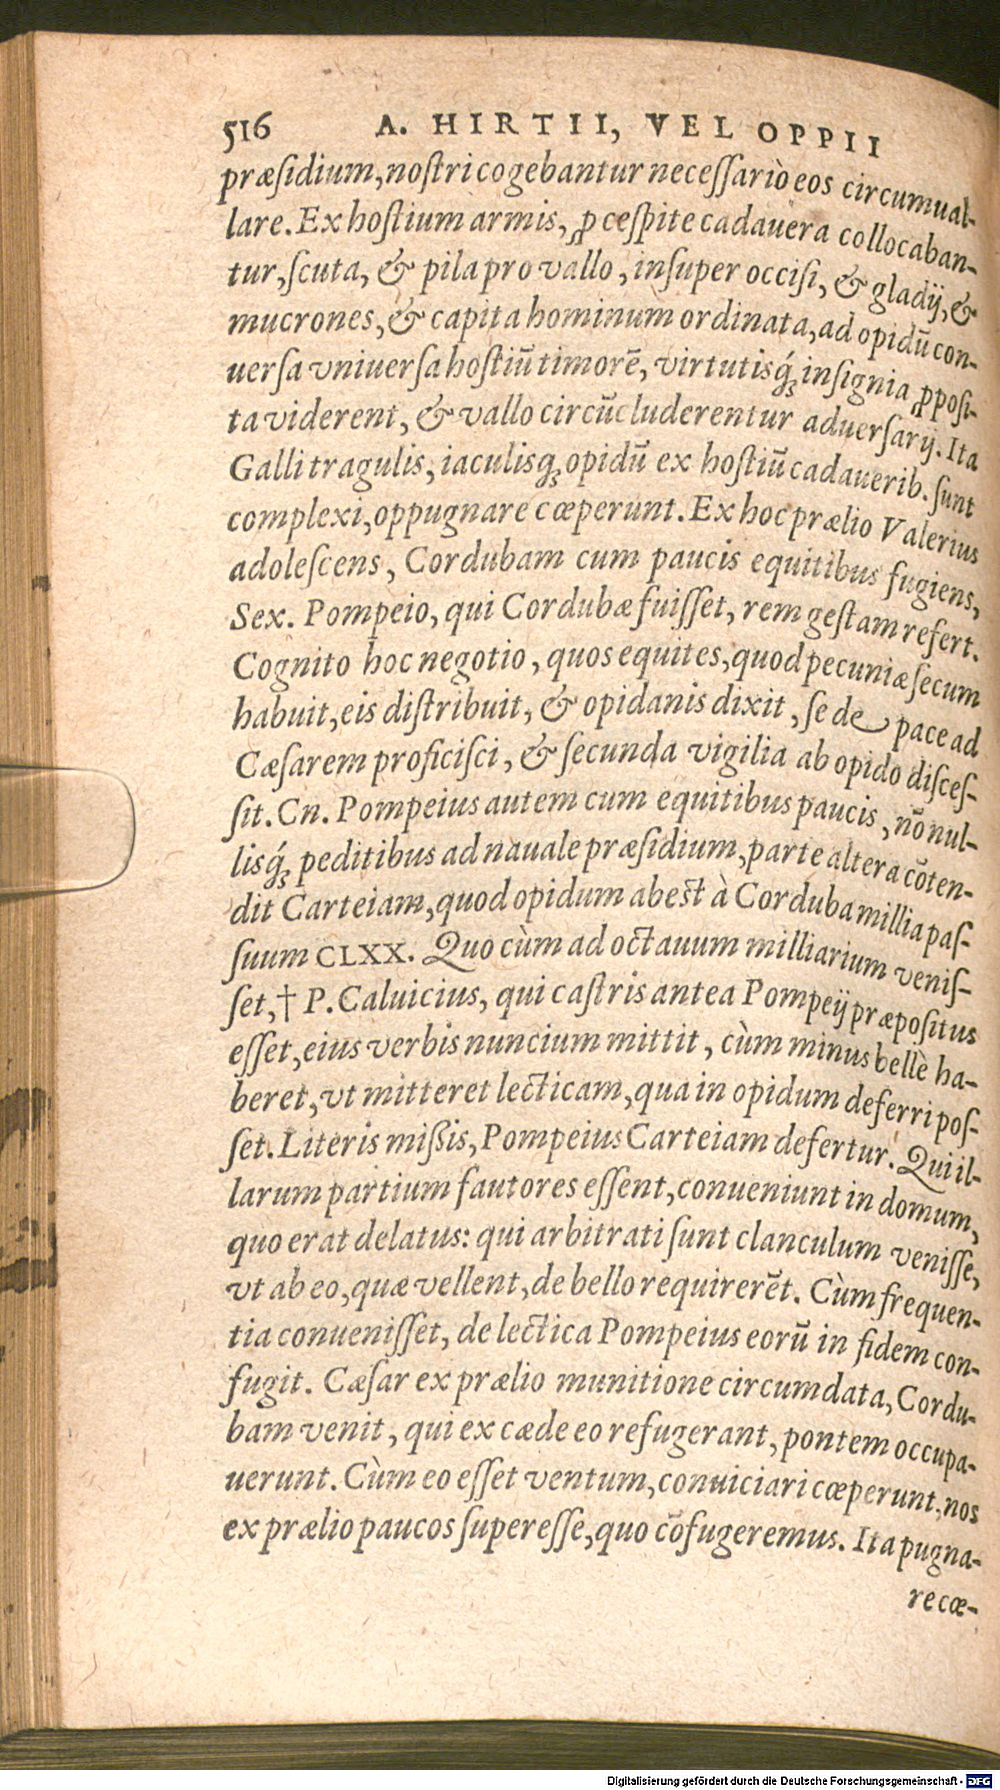 516 A. HIRTII, VEL OPPII
præſidium, noſtri cogebantur neceſſariò eos circumual-
lare. Ex hoſtium armis, ꝓ ceſpite cadauera collocaban-
tur, ſcuta, & pila pro vallo, inſuper occiſi, & gladij, &
mucrones, & capita hominum ordinata, ad opidũ con-
uerſa vniuerſa hoſtiũ timorẽ, virtutisq́; inſignia ꝓpoſi-
ta viderent, & vallo circũcluderentur aduerſarij. Ita
Galli tragulis, iaculisq; opidũ ex hoſtiũ cadauerib. ſunt
complexi, oppugnare cœperunt. Ex hoc prælio Valerius
adoleſcens, Cordubam cum paucis equitibus fugiens,
Sex. Pompeio, qui Cordubæ fuiſſet, rem geſtam refert.
Cognito hoc negotio, quos equites, quod pecuniæ ſecum
habuit, eis diſtribuit, & opidanis dixit, ſe de pace ad
Cæſarem proficiſci, & ſecunda vigilia ab opido diſceſ-
ſit. Cn. Pompeius autem cum equitibus paucis, nõnul-
lisq́; peditibus ad nauale præſidium, parte altera cõten-
dit Carteiam, quod opidum abest à Corduba millia paſ-
ſuum CLXX. Quo cùm ad octauum milliarium veniſ-
ſet, † P. Caluicius, qui caſtris antea Pompeij præpoſitus
eſſet, eius verbis nuncium mittit, cùm minus bellè ha-
beret, vt mitteret lecticam, qua in opidum deferri poſ-
ſet. Literis miſſis, Pompeius Carteiam defertur. Qui il-
larum partium fautores eſſent, conueniunt in domum,
quo erat delatus: qui arbitrati ſunt clanculum veniſſe,
vt ab eo, quæ vellent, de bello requirerẽt. Cùm frequen-
tia conueniſſet, de lectica Pompeius eorũ in fidem con-
fugit. Cæſar ex prælio munitione circumdata, Cordu-
bam venit, qui ex cæde eo refugerant, pontem occupa-
uerunt. Cùm eo eſſet ventum, conuiciari cœperunt, nos
ex prælio paucos ſupereſſe, quo cõfugeremus. Ita pugna-
re cœ-
Digitalisierung gefördert durch die Deutsche Forschungsgemeinschaft - DFG